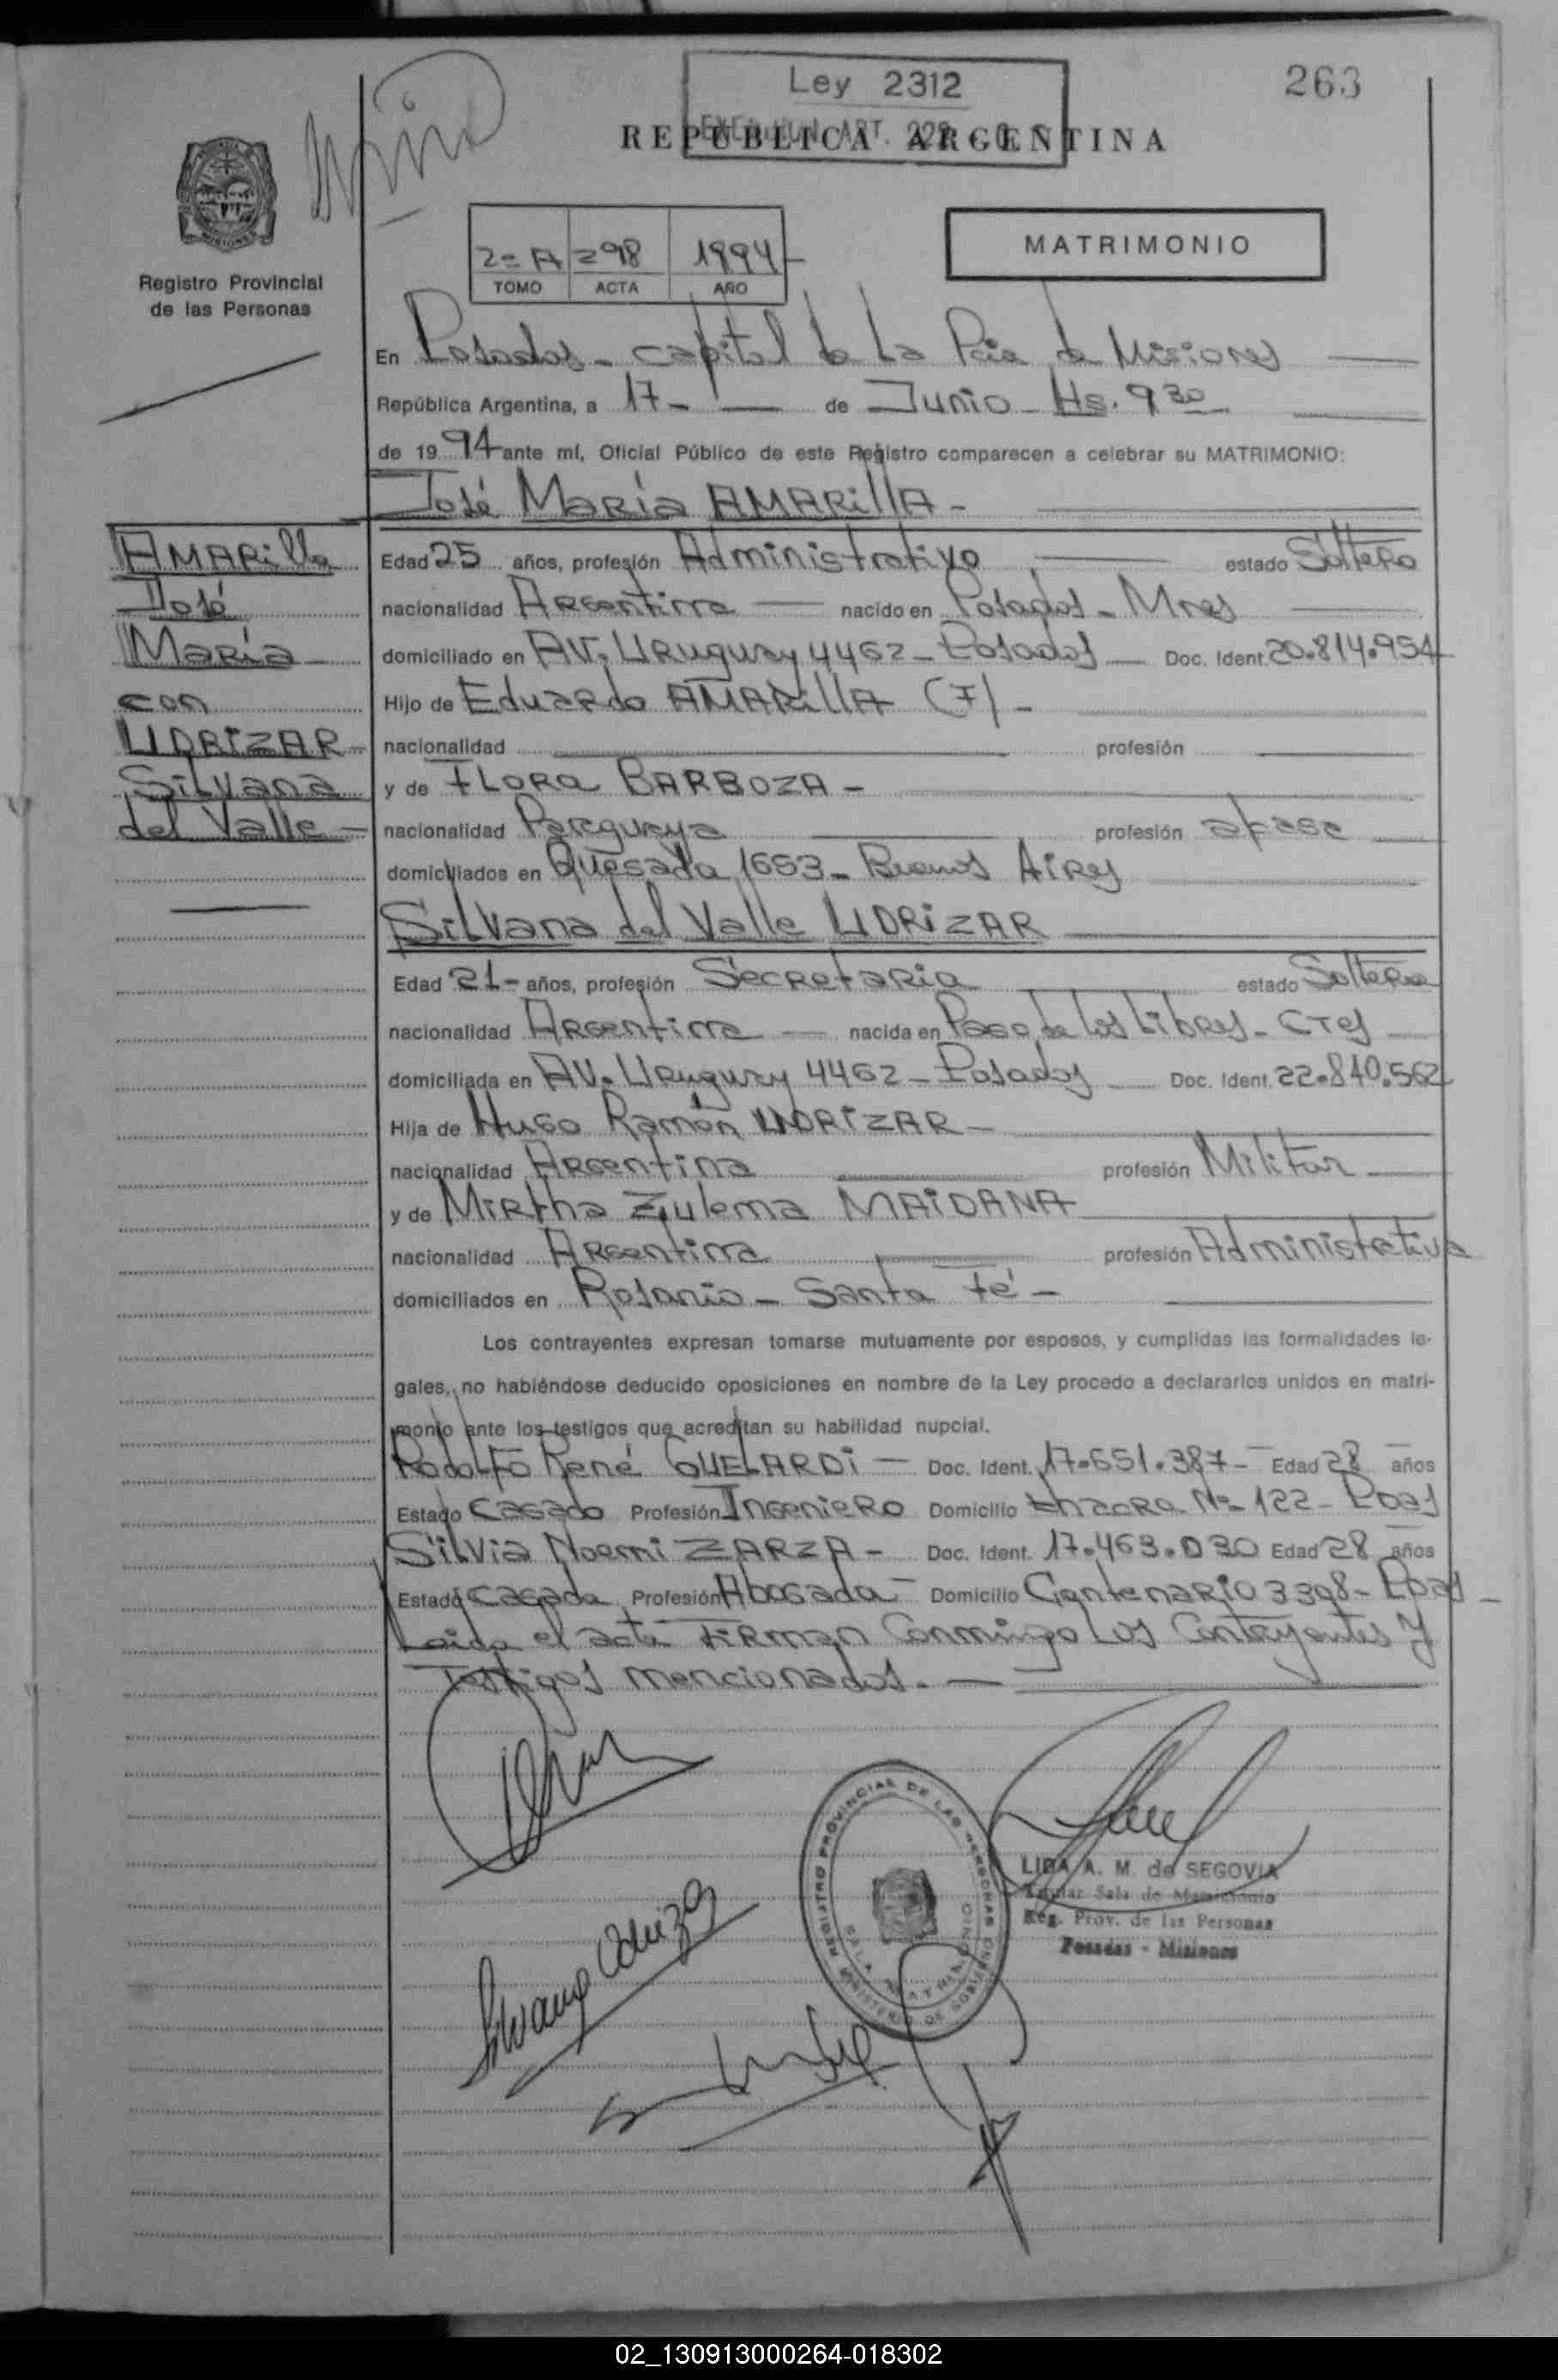 Ley 2312
263
REPUBLICA ARGENTINA
2º A 298 1994
TOMO ACTA AÑO
MATRIMONIO
MISIONES
Registro Provincial
de las Personas
En Posadas - capital de La Pcia de Misiones
República Argentina, a 17 - de Junio - Hs. 9 30
de 19 94 ante mí, Oficial Público de este Registro comparecen a celebrar su MATRIMONIO:
José María AMARILLA -
AMARilla
José
María
con
UDRIZAR
Silvana
del Valle -
Edad 25 años, profesión Administrativo estado Soltero
nacionalidad Argentina nacido en Posadas - Mnes
domiciliado en AV. Uruguay 4462 - Posadas Doc. Ident. 20.814.954
Hijo de Eduardo AMARILLA (F) -
nacionalidad profesión
y de Flora BARBOZA -
nacionalidad Paraguaya profesión
domiciliados en Quesada 1653 - Buenos Aires
Silvana del Valle UDRIZAR
Edad 21 - años, profesión Secretaria estado Soltera
nacionalidad Argentina nacida en Paso de los Libres - Ctes
domiciliada en AV. Uruguay 4462 - Posadas Doc. Ident. 22.840.562
Hija de Hugo Ramón UDRIZAR -
nacionalidad Argentina profesión Militar
y de Mirtha Zulema MAIDANA
nacionalidad Argentina profesión Administrativa
domiciliados en Rosario - Santa Fé -
Los contrayentes expresan tomarse mutuamente por esposos, y cumplidas las formalidades le-
gales, no habiéndose deducido oposiciones en nombre de la Ley procedo a declararlos unidos en matri-
monio ante los testigos que acreditan su habilidad nupcial.
Rodolfo René GUELARDI - Doc. Ident. 17.651.387 - Edad 28 años
Estado Casado Profesión Ingeniero Domicilio Nº 122 - Pdas
Silvia Noemi ZARZA - Doc. Ident. 17.463.030 Edad 28 años
Estado Casada Profesión Abogada - Domicilio Centenario 3398 - Pdas
Leída el acta Firman Conmingo Los Contrayentes y
Testigos mencionados. -
REGISTRO PROVINCIAL DE LAS PERSONAS
SALA MATRIMONIO
MINISTERIO DE GOBIERNO
LIDA A. M. de SEGOVIA
Titular Sala de Matrimonio
Reg. Prov. de las Personas
Posadas - Misiones
Silvana Udrizar
02_130913000264-018302